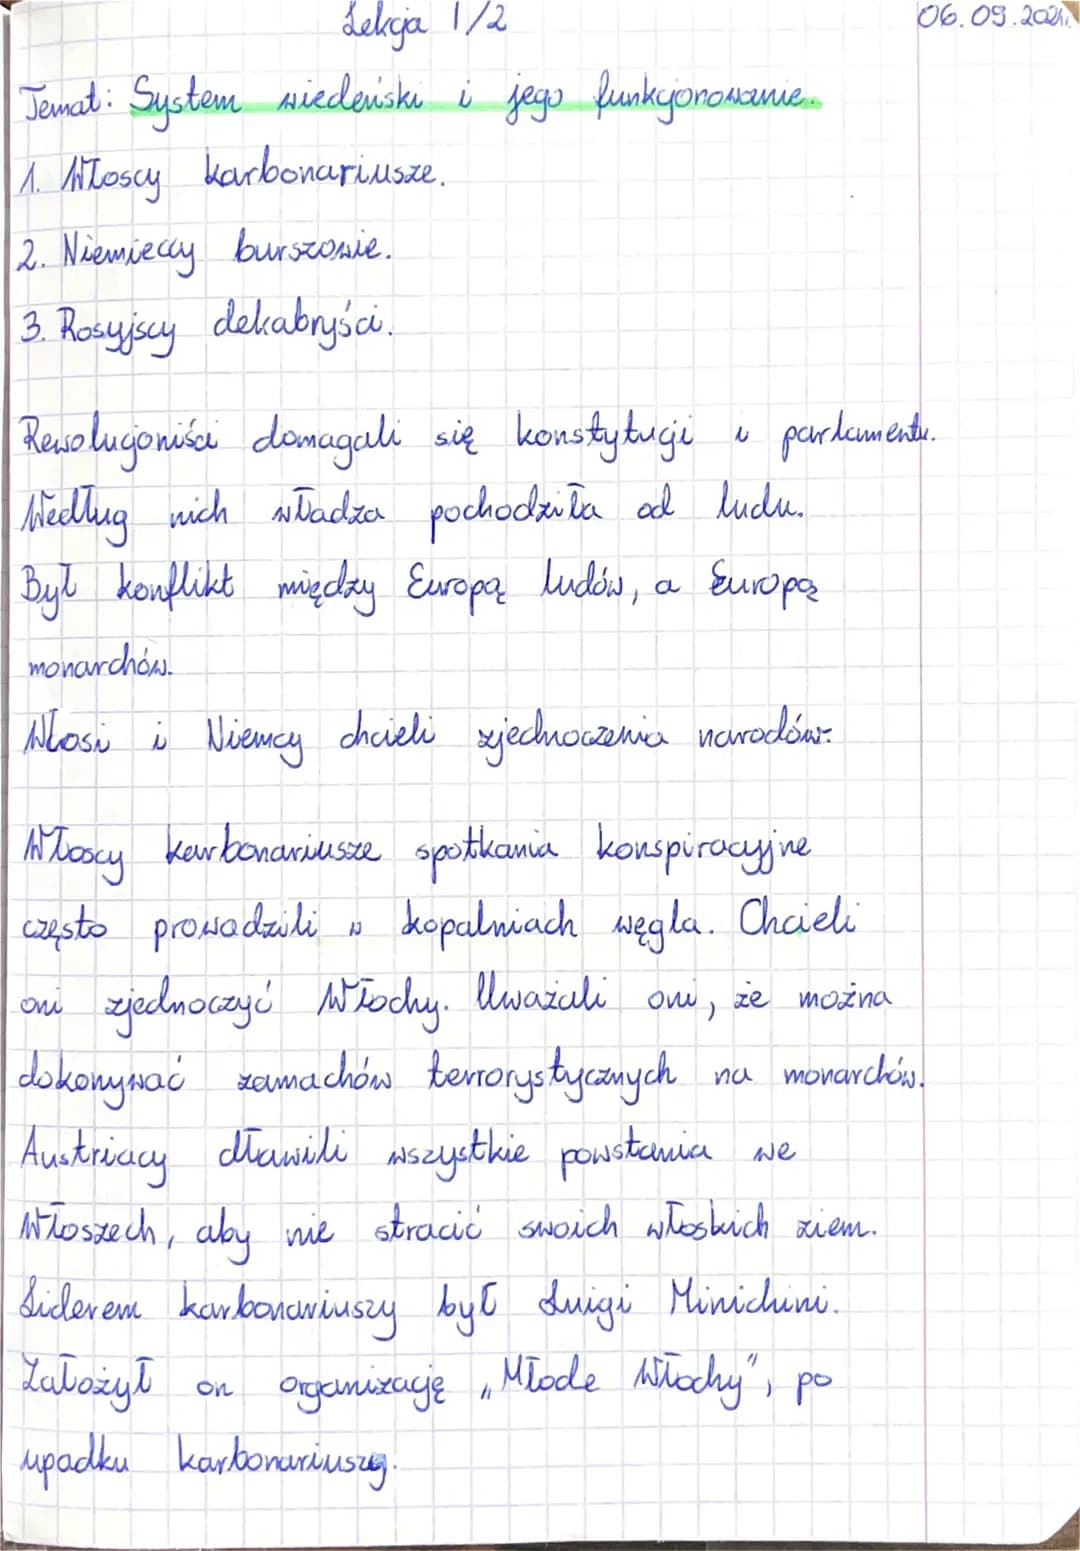 Lekcja 1/2
06.09.2024r.
Temat: System wiedeński i jego funkcjonowanie.
1. Włoscy karbonariusze.
2. Niemieccy burszowie.
3. Rosyjscy dekabryści.
Rewolucjoniści domagali się konstytucji i parlamentu.
Według nich władza pochodziła od ludu.
Był konflikt między Europą ludów, a Europą
monarchów.
Włosi i Niemcy chcieli zjednoczenia narodów.
Włoscy karbonariusze spotkania konspiracyjne
często prowadzili w kopalniach węgla. Chcieli
oni zjednoczyć Włochy. Uważali oni, że można
dokonywać zamachów terrorystycznych na monarchów.
Austriacy dławili wszystkie powstania we
Włoszech, aby nie stracić swoich włoskich ziem.
Liderem karbonariuszy był Luigi Minichini.
Założył on organizację „Młode Włochy", po
upadku karbonariuszy.